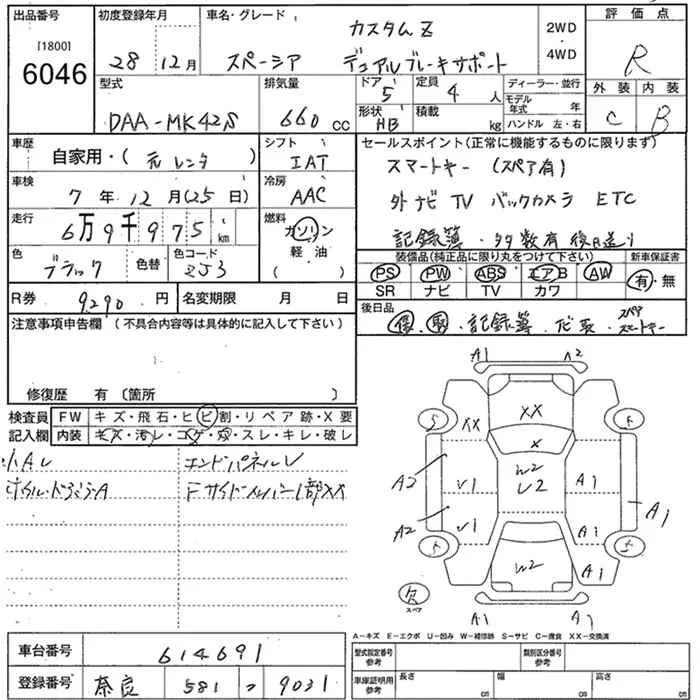 出品番号 [1800] 6046
初度登録年月 28年12月
車名・グレード スペーシア カスタムZ デュアルブレーキサポート
2WD・4WD
評価点 R
外装 C 内装 B
型式 DAA-MK42S
排気量 660cc
ドア 5 形状 HB
定員 4人
積載 kg
ディーラー・並行
モデル年式 年
ハンドル 左・右
車歴 自家用・(元レンタ)
シフト IAT
車検 7年12月(25日)
冷房 AAC
走行 6万9千975km
燃料 ガソリン 軽油 ( )
色 ブラック 色替 色コード ZJ3
R券 9290円 名変期限 月 日
セールスポイント(正常に機能するものに限ります)
スマートキー (スペア有)
外ナビ TV バックカメラ ETC
記録簿・多数有 後日送り
装備品(純正品に限り丸をつけて下さい) 新車保証書
PS PW ABS エアB AW 有・無
SR ナビ TV カワ
後日品 保・取・記録簿・ スペアスマートキー
注意事項申告欄 (不具合内容等は具体的に記入して下さい)
修復歴 有 (箇所 )
検査員記入欄
FW キズ・飛石・ヒビ割・リペア跡・X要
内装 キズ・汚レ・コゲ・穴・スレ・キレ・破レ
エンドパネルU
A1 A2
XX XX
X
A2 U1 W2 U2 A1 A1
A2 U1 A1
W2 A1
欠 スペア
A1 A1
A-キズ E-エクボ U-凹み W-補修跡 S-サビ C-腐食 XX-交換済
車台番号 614691
登録番号 奈良 581 つ 9031
型式指定番号 参考
類別区分番号 参考
車庫証明用 参考 長さ cm 幅 cm 高さ cm